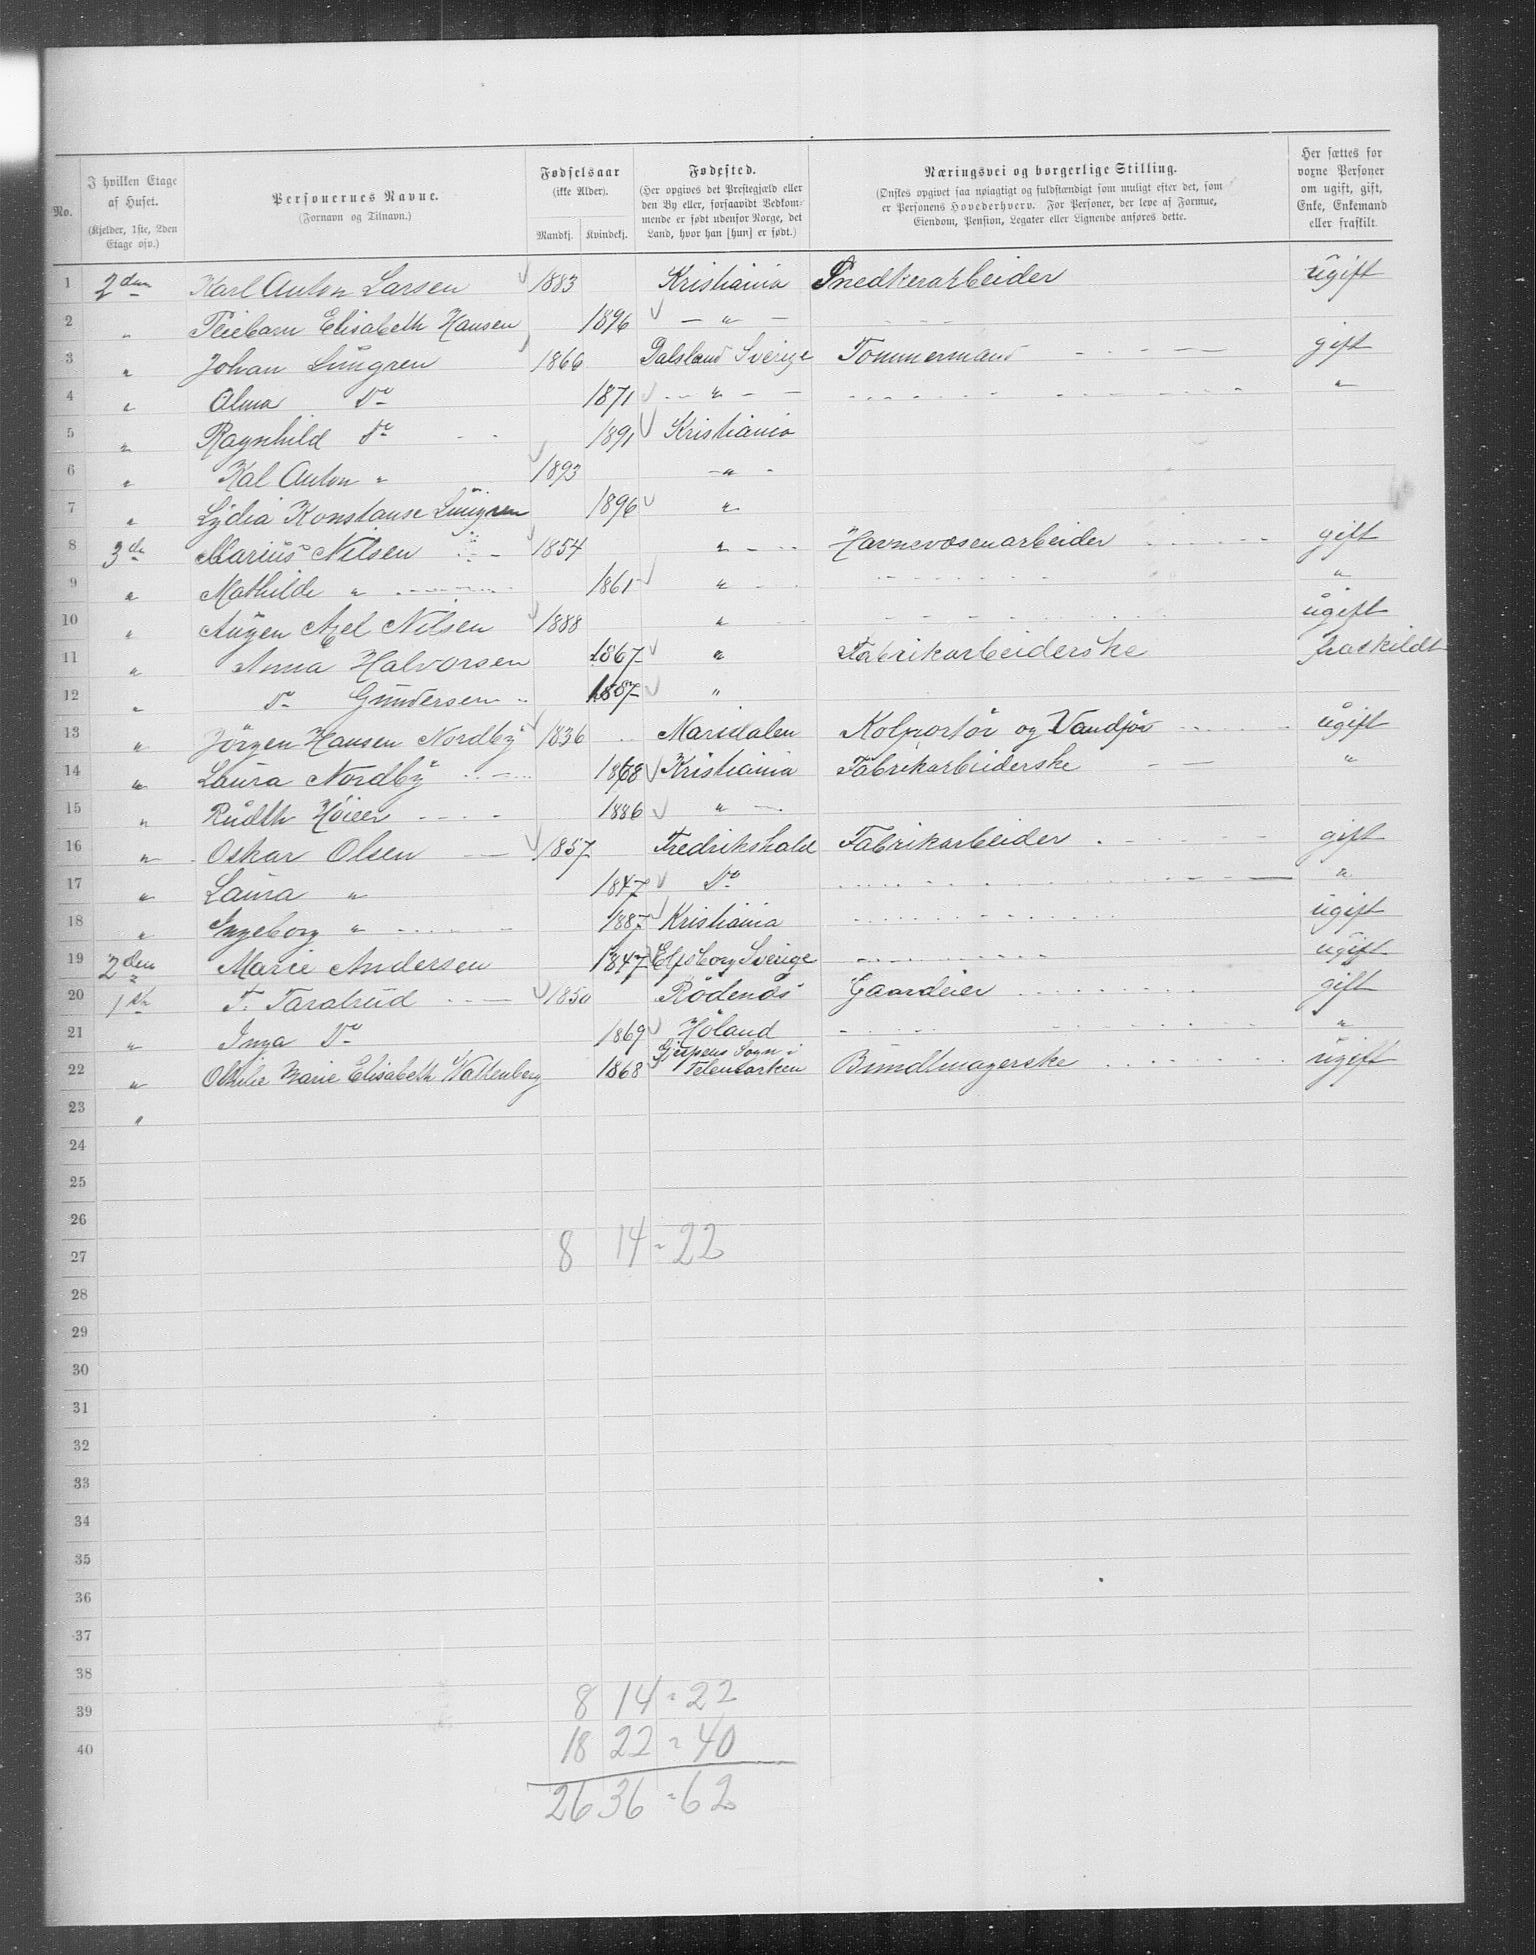 No. | I hvilken Etage af Huset. (Kjelder, 1ste, 2den Etage osv.) | Personernes Navne. (Fornavn og Tilnavn.) | Fødselsaar (ikke Alder). Mandkj. | Kvindekj. | Fødested. (Her opgives det Prestegjæld eller den By eller, forsaavidt Vedkommende er født udenfor Norge, det Land, hvor han [hun] er født.) | Næringsvei og borgerlige Stilling. (Ønskes opgivet saa nøiagtigt og fuldstændigt som muligt efter det, som er Personens Hovederhverv. For Personer, der leve af Formue, Eiendom, Pension, Legater eller Lignende anføres dette.) | Her sættes for voxne Personer om ugift, gift, Enke, Enkemand eller fraskilt.
1 2den Karl Anton Larsen 1883 Kristiania Snedkerarbeider ugift
2 " Pleiebarn Elisabeth Hansen 1896 — " —
3 " Johan Lungren 1866 Dalsland Sverige Tommermand gift
4 " Alma Do 1871 " "
5 " Ragnhild do 1891 Kristiania
6 " Kal Anton " 1893 "
7 " Lydia Konstanse Lungren 1896 "
8 3de Marius Nilsen 1854 " Havnevæsenarbeider gift
9 " Mathilde " 1861 " "
10 " Augen Axel Nilsen 1888 " ugift
11 " Anna Halvorsen 1867 " Fabrikarbeiderske fraskildt
12 " do Gundersen 1887 "
13 " Jörgen Hansen Nordby 1836 Maridalen Kolportör og ugift
14 " Laura Nordby 1868 Kristiania Fabrikarbeiderske "
15 " Rudth Höier 1886 "
16 " Oskar Olsen 1857 Fredrikshald Fabrikarbeider gift
17 " Laura " 1847 Do "
18 " Ingeborg " 1887 Kristiania ugift
19 2den Marie Andersen 1847 Elfsborg Sverige ugift
20 1ste T. Taraldrud 1850 Rödenäs Gaardeier gift
21 " Inga Do 1869 Höland "
22 " Othilie Marie Elisabeth Wattenberg 1868 Gjerpens Sogn i Telemarken Bundtmagerske ugift
23 "
24
25
26
27 8 14 = 22
28
29
30
31
32
33
34
35
36
37
38
39 8 14 = 22
40 18 22 = 40
26 36 = 62